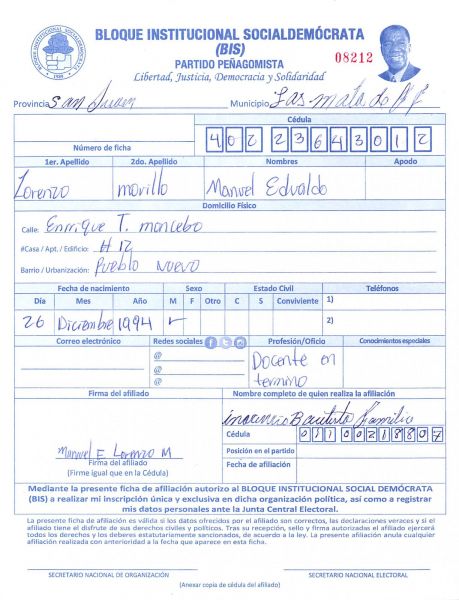 BLOQUE INSTITUCIONAL SOCIALDEMÓCRATA
(BIS)
PARTIDO PEÑAGOMISTA
08212
Libertad, Justicia, Democracia y Solidaridad
Provincia San Juan Municipio Las mata de
Cédula
Número de ficha 402 2364301 2
1er. Apellido 2do. Apellido Nombres Apodo
Lorenzo morillo Manuel Edualdo
Domicilio Físico
Calle: Enrrique T. moncebo
#Casa / Apt. / Edificio: # 12
Barrio / Urbanización: Pueblo nuevo
Fecha de nacimiento Sexo Estado Civil Teléfonos
Día Mes Año M F Otro C S Conviviente 1)
26 Diciembre 1994 ✓ 2)
Correo electrónico Redes sociales Profesión/Oficio Conocimientos especiales
@ Docente en
@ termino
@
Firma del afiliado Nombre completo de quien realiza la afiliación
inocencio Bautista Familia
Cédula 01100218807
Manuel E. Lorenzo M Posición en el partido
Firma del afiliado Fecha de afiliación
(Firme igual que en la Cédula)
Mediante la presente ficha de afiliación autorizo al BLOQUE INSTITUCIONAL SOCIAL DEMÓCRATA
(BIS) a realizar mi inscripción única y exclusiva en dicha organización política, así como a registrar
mis datos personales ante la Junta Central Electoral.
La presente ficha de afiliación es válida si los datos ofrecidos por el afiliado son correctos, las declaraciones veraces y si el
afiliado tiene el disfrute de sus derechos civiles y políticos. Tras su recepción, sello y firma autorizados el afiliado ejercerá
todos los derechos y los deberes estatutariamente sancionados, de acuerdo a la ley. La presente afiliación anula cualquier
afiliación realizada con anterioridad a la fecha que aparece en esta ficha.
SECRETARIO NACIONAL DE ORGANIZACIÓN SECRETARIO NACIONAL ELECTORAL
(Anexar copia de cédula del afiliado)